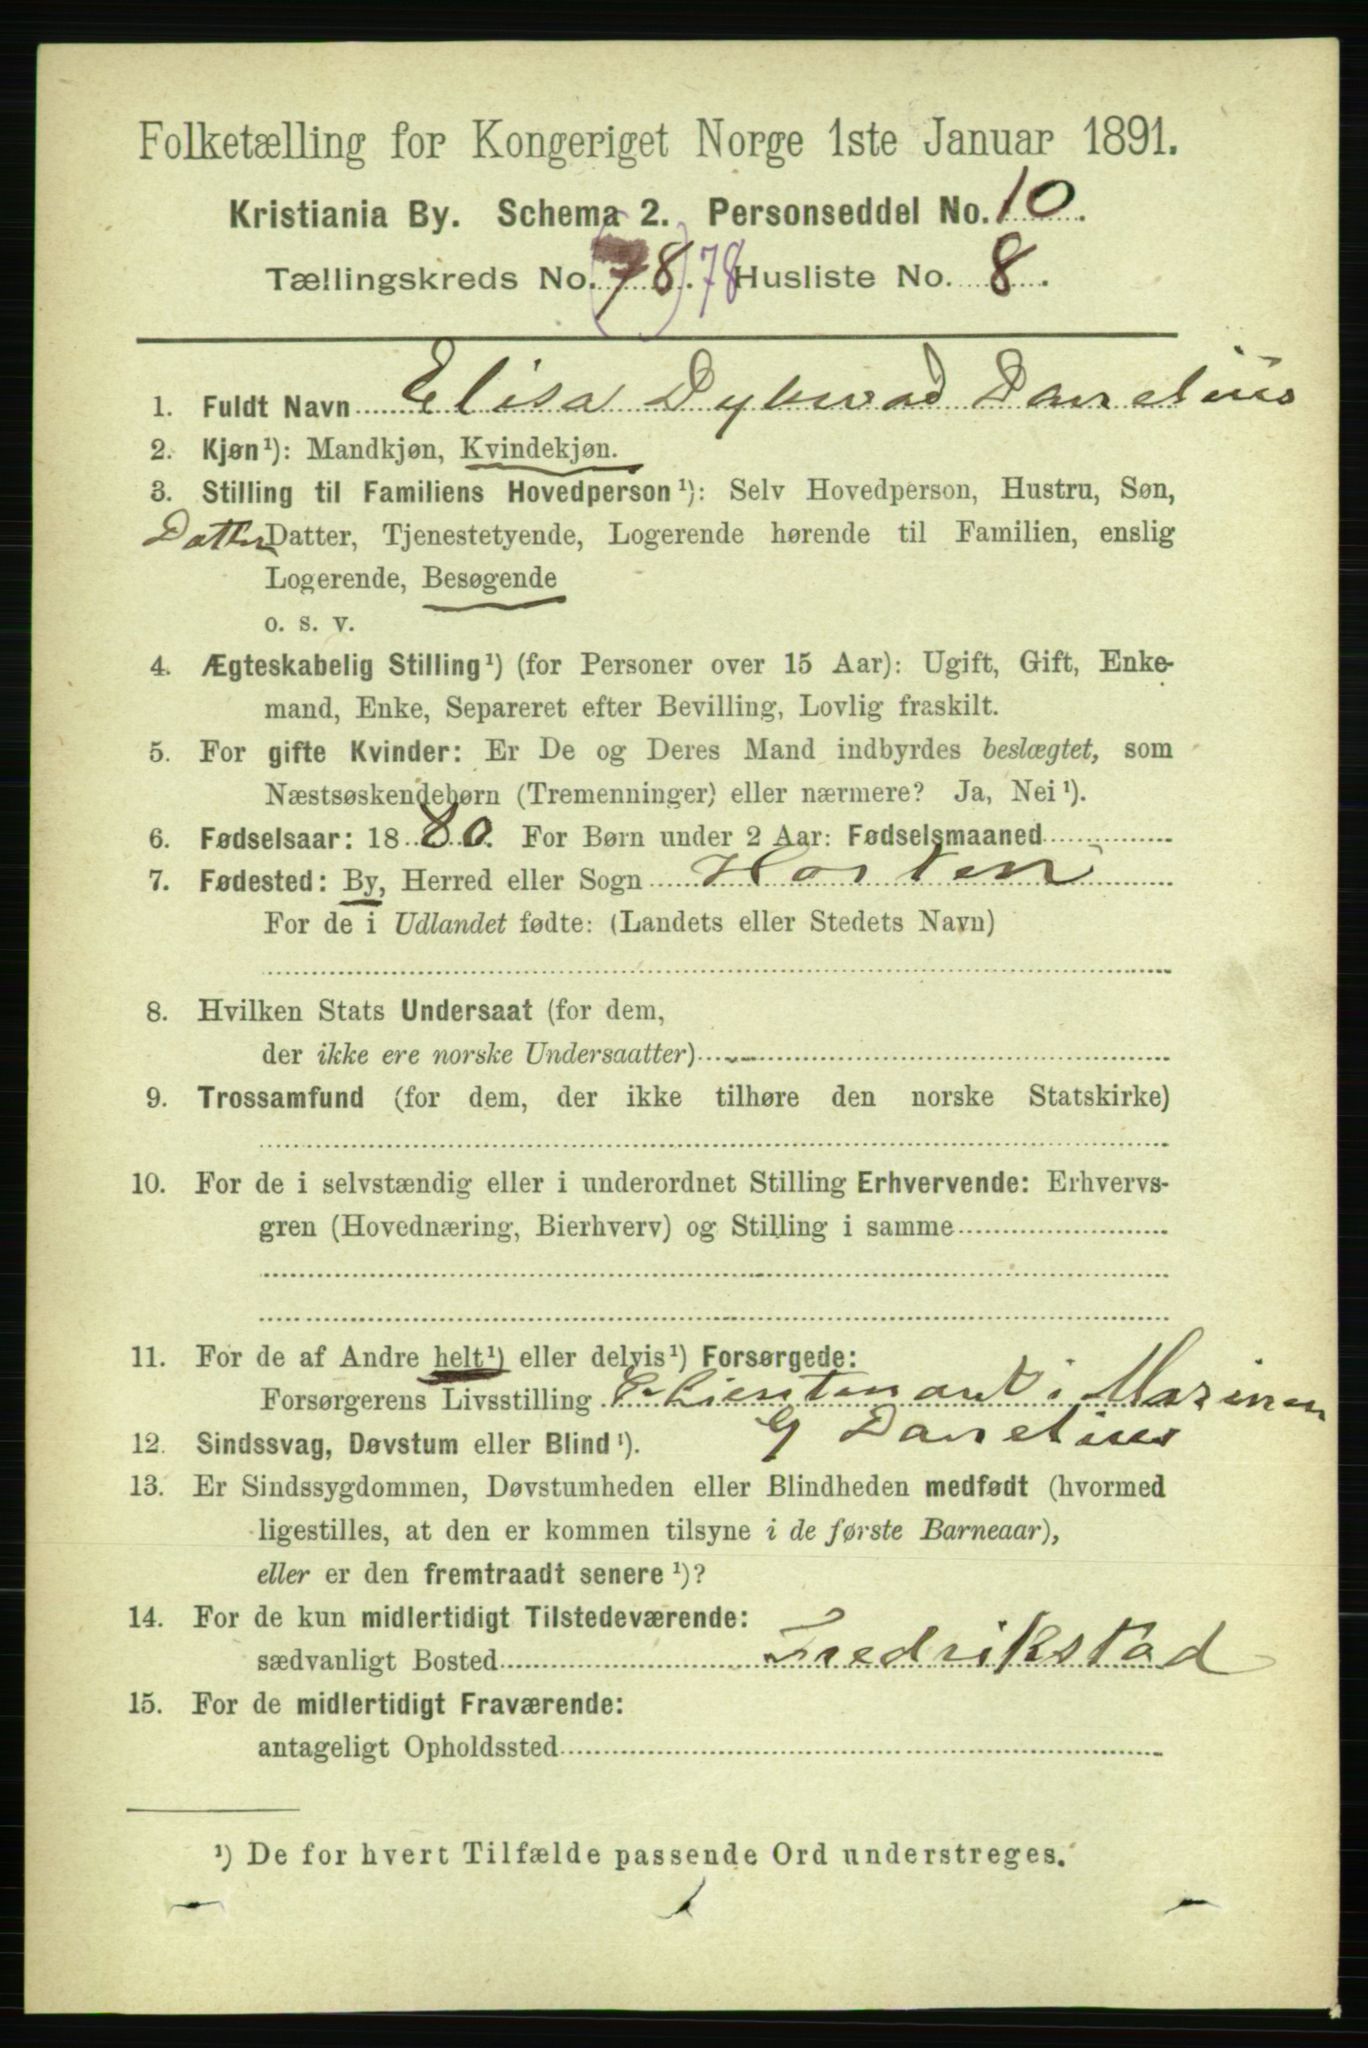 Folketælling for Kongeriget Norge 1ste Januar 1891.
Kristiania By. Schema 2. Personseddel No. 10.
Tællingskreds No. (78). 78 Husliste No. 8.
1. Fuldt Navn Elisa Dykwad Danelius
2. Kjøn¹): Mandkjøn, Kvindekjøn.
3. Stilling til Familiens Hovedperson¹): Selv Hovedperson, Hustru, Søn,
Datter Datter, Tjenestetyende, Logerende hørende til Familien, enslig
Logerende, Besøgende
o. s. v.
4. Ægteskabelig Stilling¹) (for Personer over 15 Aar): Ugift, Gift, Enke-
mand, Enke, Separeret efter Bevilling, Lovlig fraskilt.
5. For gifte Kvinder: Er De og Deres Mand indbyrdes beslægtet, som
Næstsøskendebørn (Tremenninger) eller nærmere? Ja, Nei¹).
6. Fødselsaar: 1880. For Børn under 2 Aar: Fødselsmaaned
7. Fødested: By, Herred eller Sogn Horten
For de i Udlandet fødte: (Landets eller Stedets Navn)
8. Hvilken Stats Undersaat (for dem,
der ikke ere norske Undersaatter)
9. Trossamfund (for dem, der ikke tilhøre den norske Statskirke)
10. For de i selvstændig eller i underordnet Stilling Erhvervende: Erhvervs-
gren (Hovednæring, Bierhverv) og Stilling i samme
11. For de af Andre helt¹) eller delvis¹) Forsørgede:
Forsørgerens Livsstilling Lieutenant i Marinen
G Danelius
12. Sindssvag, Døvstum eller Blind¹).
13. Er Sindssygdommen, Døvstumheden eller Blindheden medfødt (hvormed
ligestilles, at den er kommen tilsyne i de første Barneaar),
eller er den fremtraadt senere¹)?
14. For de kun midlertidigt Tilstedeværende:
sædvanligt Bosted Fredrikstad
15. For de midlertidigt Fraværende:
antageligt Opholdssted
¹) De for hvert Tilfælde passende Ord understreges.